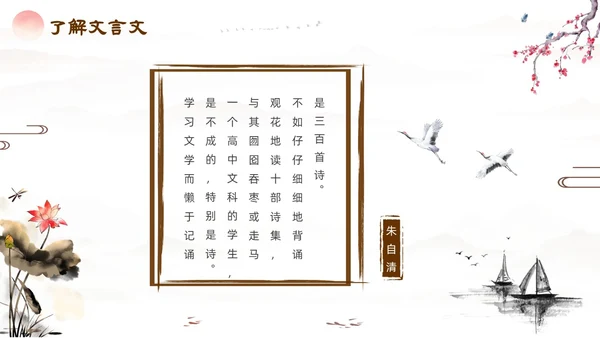 了解文言文
学习文学而懒于记诵
是不成的，特别是诗。
一个高中文科的学生，
与其囫囵吞枣或走马
观花地读十部诗集，
不如仔仔细细地背诵
是三百首诗。
朱自清